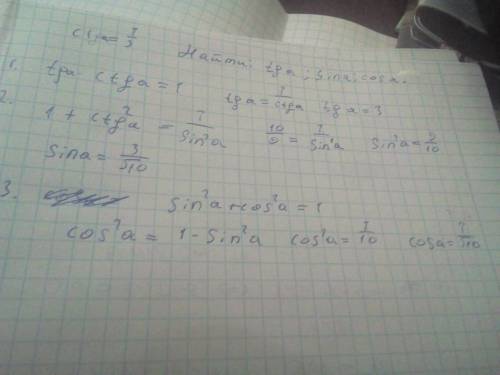 ctga = 1/3
Найти: tga; sina; cosa.
1. tga · ctga = 1 tga = 1/ctga tga = 3
2. 1 + ctg²a = 1/sin²a 10/9 = 1/sin²a sin²a = 9/10
sina = 3/√10
3. sin²a + cos²a = 1
cos²a = 1 - sin²a cos²a = 1/10 cosa = 1/√10